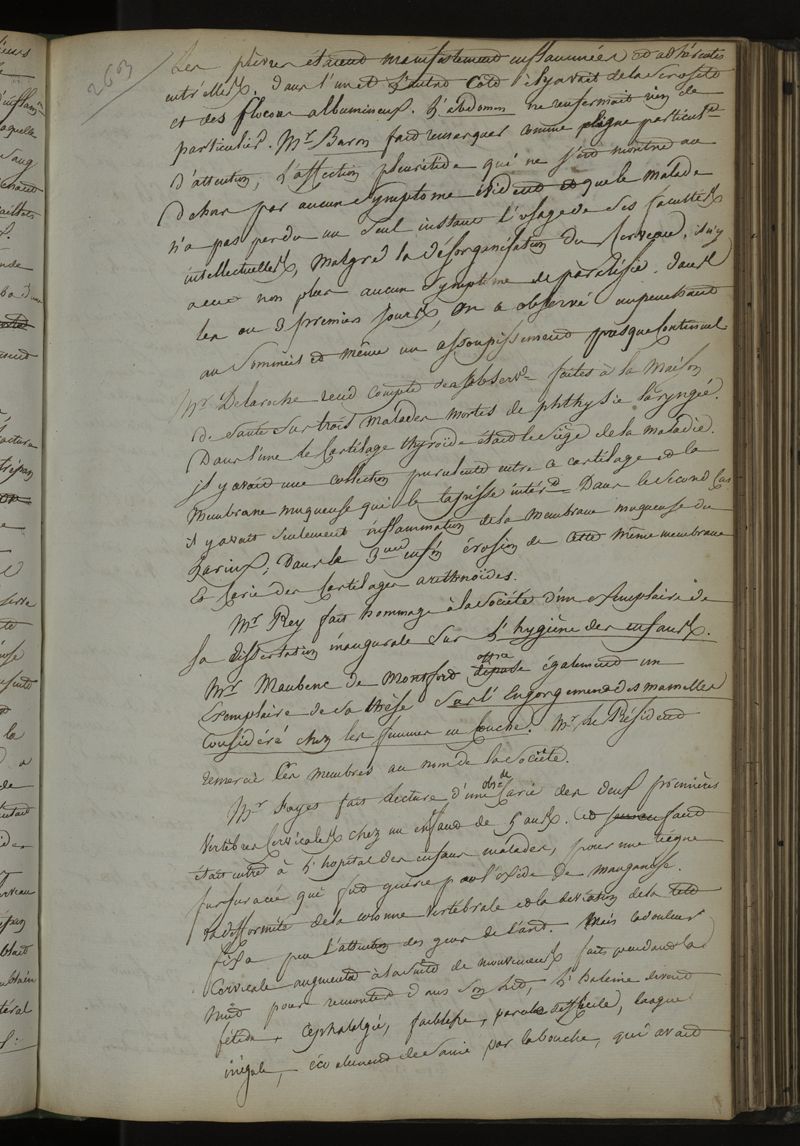 263
Les plèvres étaient manifestement enflammées et adhérentes
entr'elles, dans l'un et l'autre coté il y avait de la sérosité
et des flocons albumineux. L'abdomen ne renfermait rien de
particulier. Mr. Baron fait remarquer comme digne particulr
d'attention, l'affection pleurétide qui ne s'est montrée au
dehors par aucun symptome évident et que le malade
n'a pas perdu un seul instant l'usage de ses facultés
intellectuelles, malgré la désorganisation du cerveau, il n'y
a eu non plus aucun symptome de paralisie. dans
les 2 ou 3 premiers jours, on a observé un penchant
au sommeil et même un assoupissement presque continuel
Mr. Delaroche rend compte des observ. faites à la maison
de santé sur trois malades mortes de phthysie laryngée.
Dans l'une le cartilage thyroïde était le siège de la maladie.
il y avait une collection purulente entre ce cartilage et la
membrane muqueuse qui le tapisse intér. Dans le second cas
il y avait seulement inflammation de la membrane muqueuse du
Larinx; Dans le 3me enfin érosion de cette même membrane
et carie des cartilages arithnoïdes.
Mr. Rey fait hommage à la Société d'un exemplaire de
sa dissertation inaugurale sur l'hygiène des enfans.
Mr. Maubenc de Montfort offre également un
exemplaire de sa thèse sur l'Engorgement des mamelles
considéré chez les femmes en couche. Mr. Le Président
remercie les membres au nom de la Société.
Mr. Fayes fait lecture d'une obs. de carie des deux premières
vertèbres cervicales chez un enfant de 5 ans. Cet enfant
était entré à l'hopital des enfans malades, pour une teigne
furfuracée qui fut guérie par l'oxide de manganèse.
La difformité de la colonne vertébrale et la déviation de la tête
fixa peu l'attention des gens de l'art. Mais la douleur
cervicale augmenta à la suite de mouvemens faits pendant la
nuit pour remonter dans son lit, l'haleine devint
fétide, céphalalgie, faiblesse, parole difficile, langue
inégale, écoulement de sanie par la bouche, qui avait